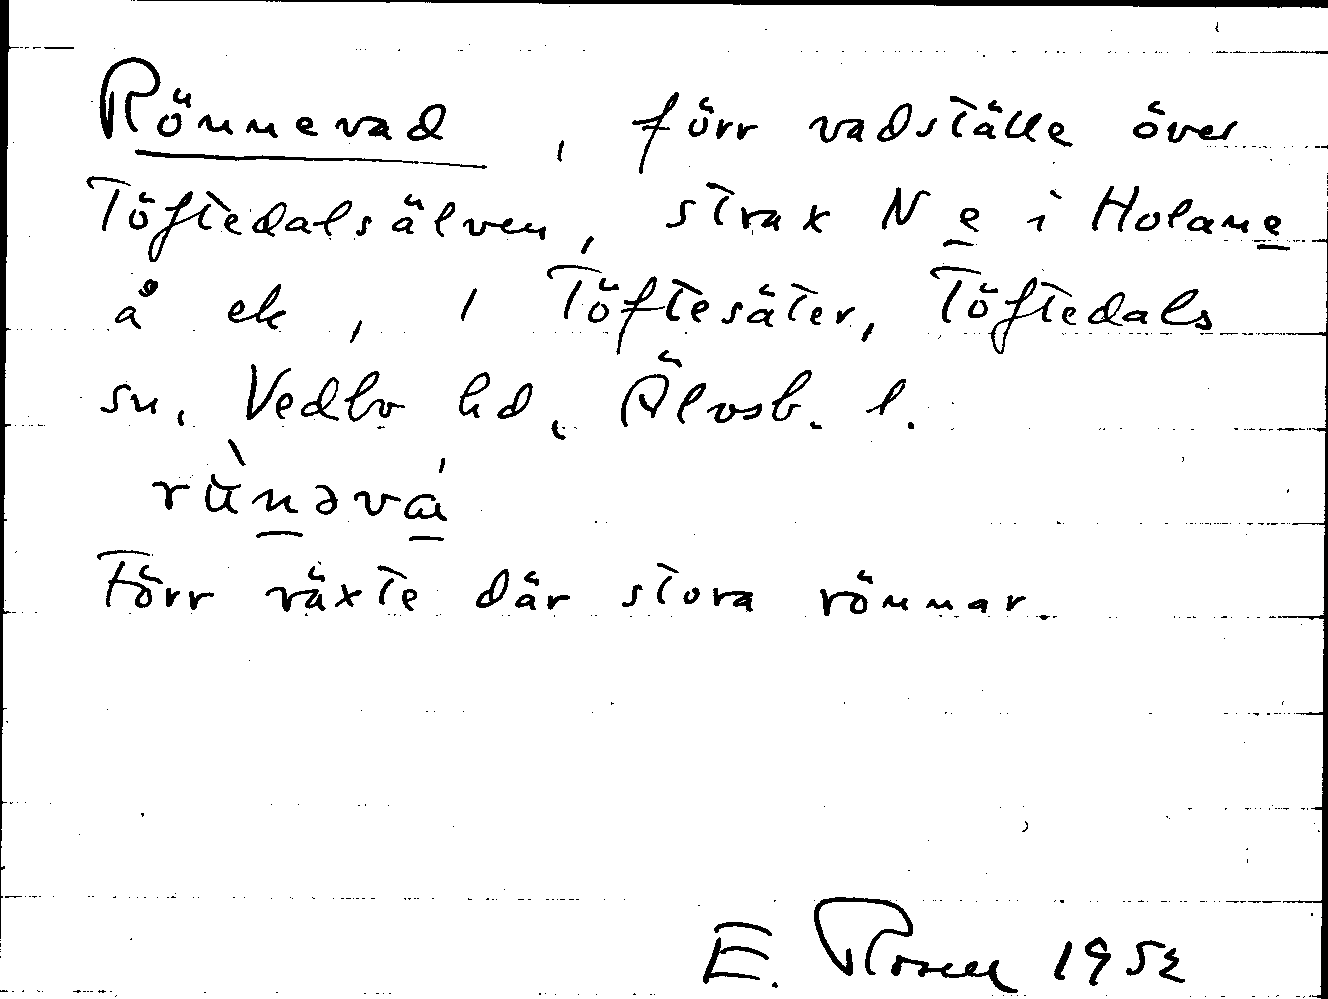 Rönnevad, förr vadställe över
Töftedalsälven, strax N e i Holane
å ek, 1 Töftesäter, Töftedals
sn. Vedbo hd. Älvsb. l.
rǜnəvá
Förr växte där stora rönnar.
E. 1952